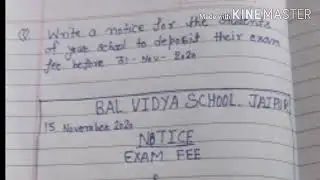 Made with KINEMASTER
Q Write a notice for the students
of your school to deposit their exam
fee before 31-Nov-2020
BAL VIDYA SCHOOL, JAIPUR
15 November 2020
NOTICE
EXAM FEE